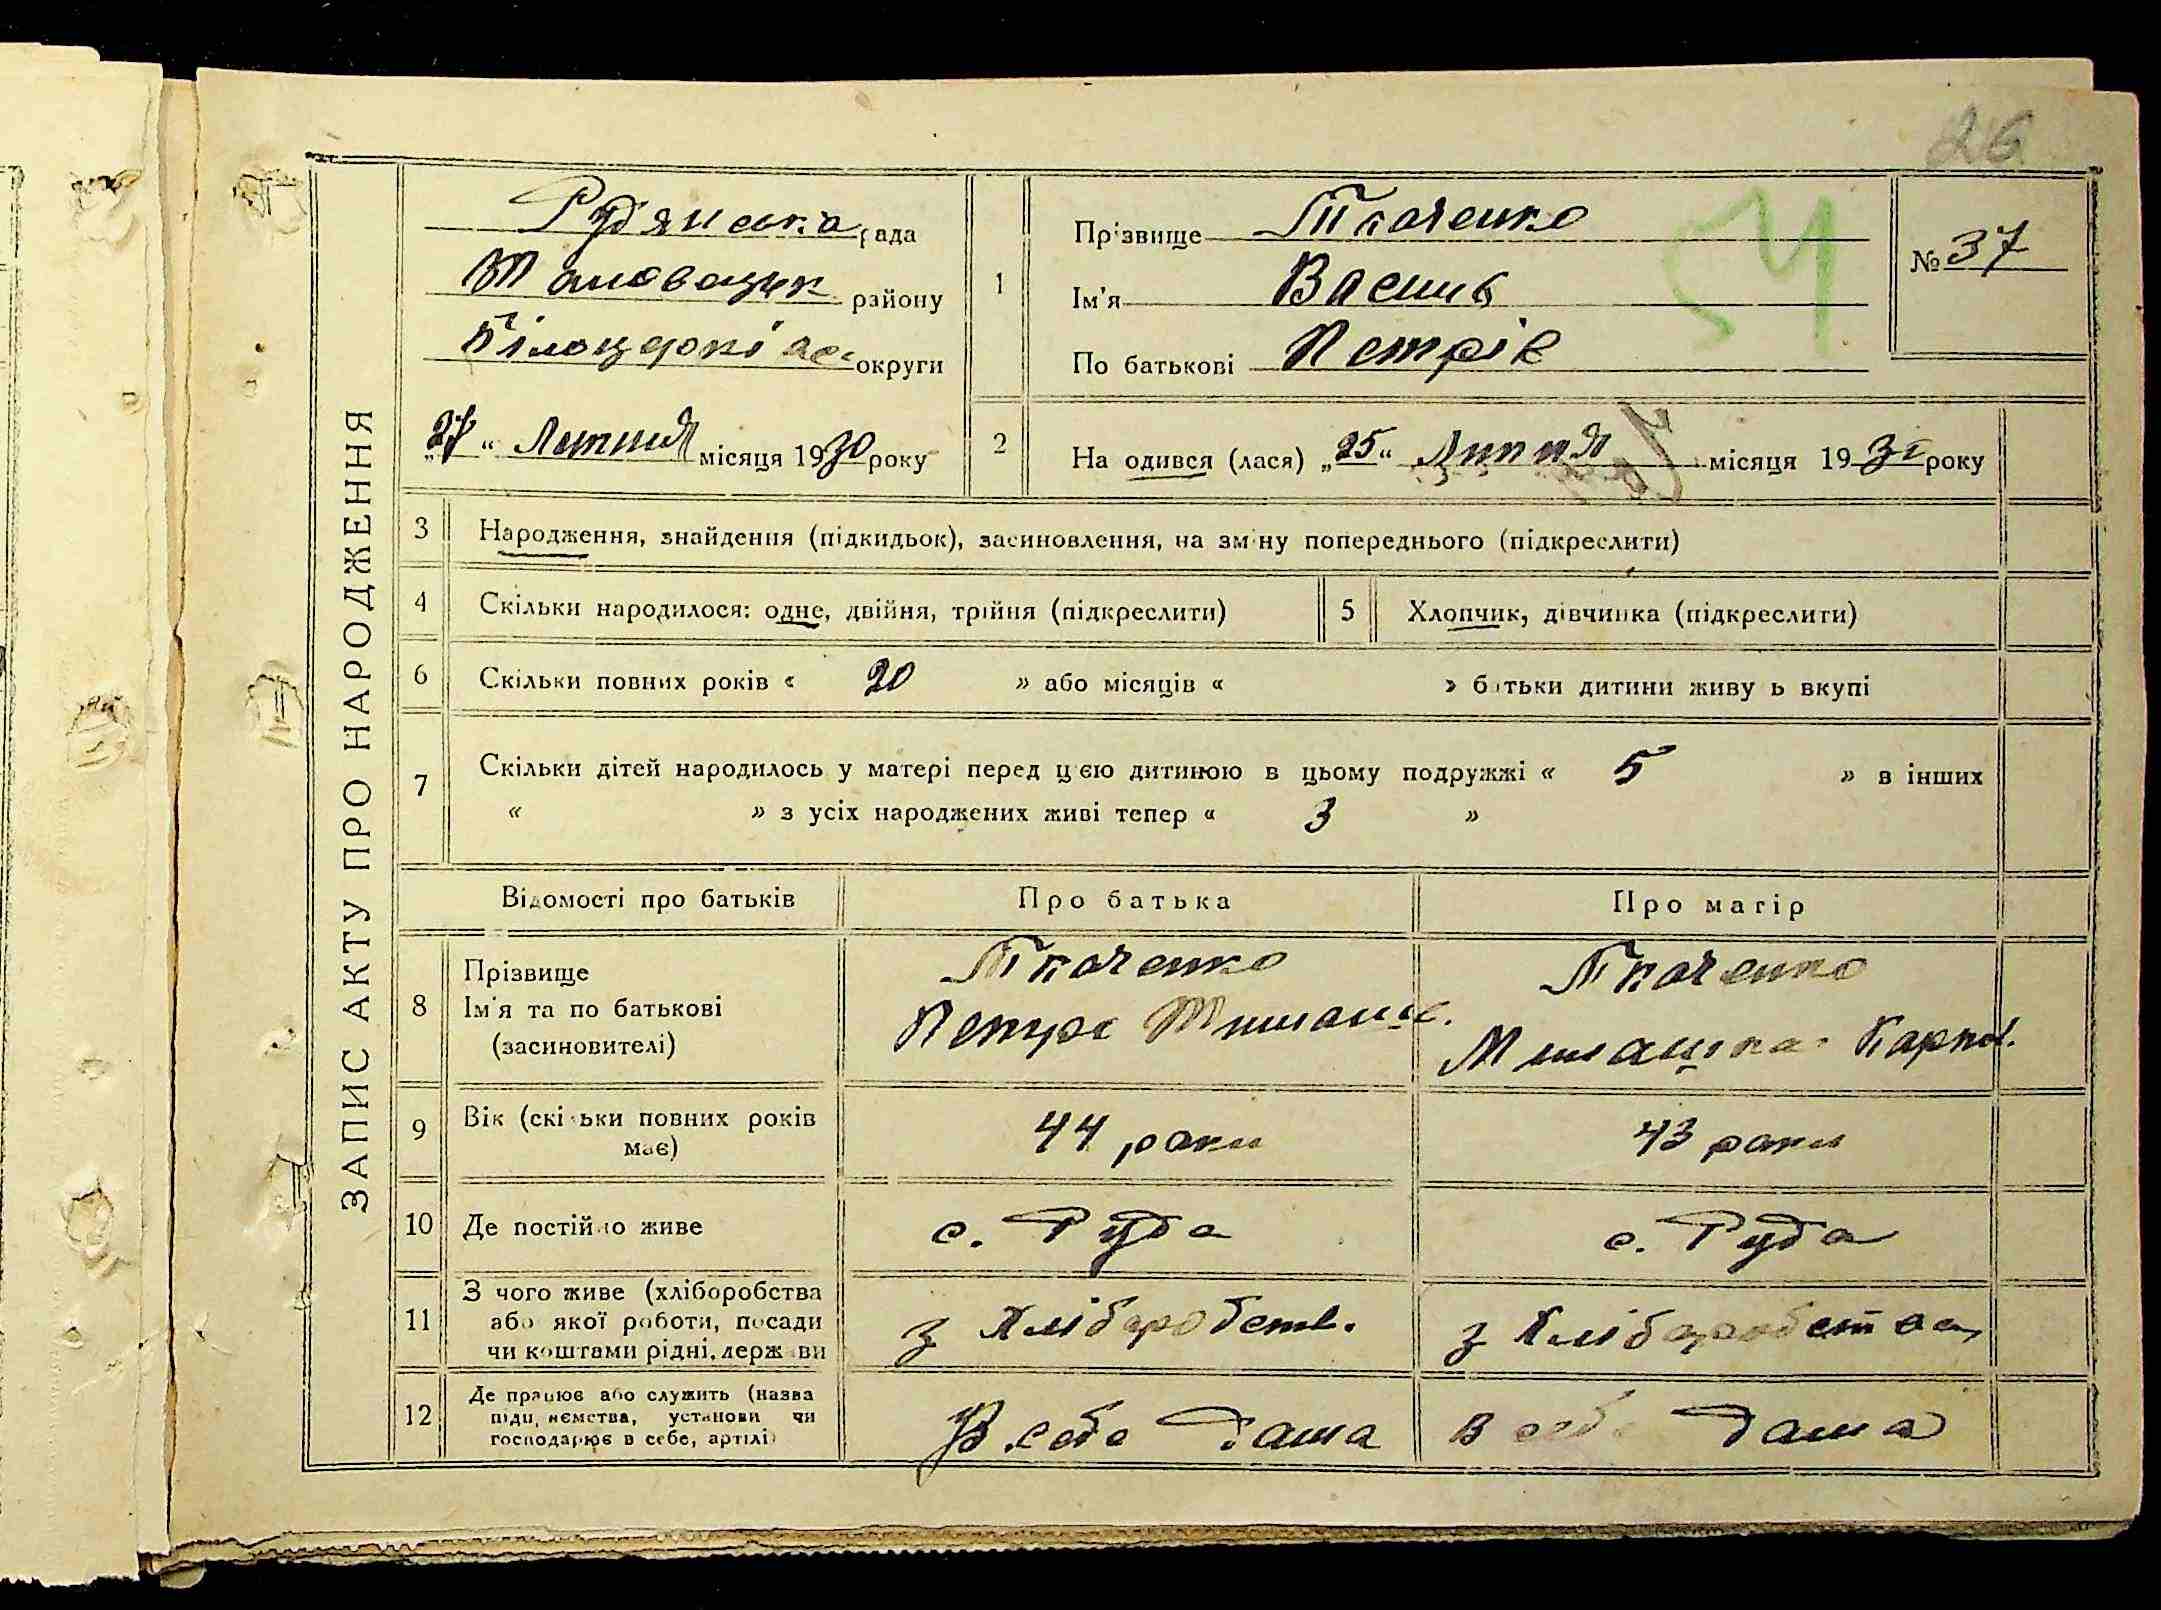 26
ЗАПИС АКТУ ПРО НАРОДЖЕННЯ
Рудянська рада
району
округи
„27“ Липня місяця 1930 року
1
Прізвище Ткаченко
Ім'я Василь
По батькові Петрів
№ 37
2
На одився (лася) „25“ Липня місяця 1930 року
3
Народження, знайдення (підкидьок), засиновлення, на зміну попереднього (підкреслити)
4
Скільки народилося: одне, двійня, трійня (підкреслити)
5
Хлопчик, дівчинка (підкреслити)
6
Скільки повних років « 20 » або місяців « » батьки дитини живуть вкупі
7
Скільки дітей народилось у матері перед цією дитиною в цьому подружжі « 5 » в інших
« » з усіх народжених живі тепер « 3 »
Відомості про батьків
Про батька
Про матір
8
Прізвище
Ім'я та по батькові
(засиновителі)
Ткаченко
Петро
Ткаченко
Карпов.
9
Вік (скільки повних років
має)
44 роки
43 роки
10
Де постійно живе
с. Руда
с. Руда
11
З чого живе (хліборобства
або якої роботи, посади
чи коштами рідні, держави
з хліборобств.
з хліборобства
12
Де працює або служить (назва
підприємства, установи чи
господарює в себе, артілі)
В себе дома
в себе дома